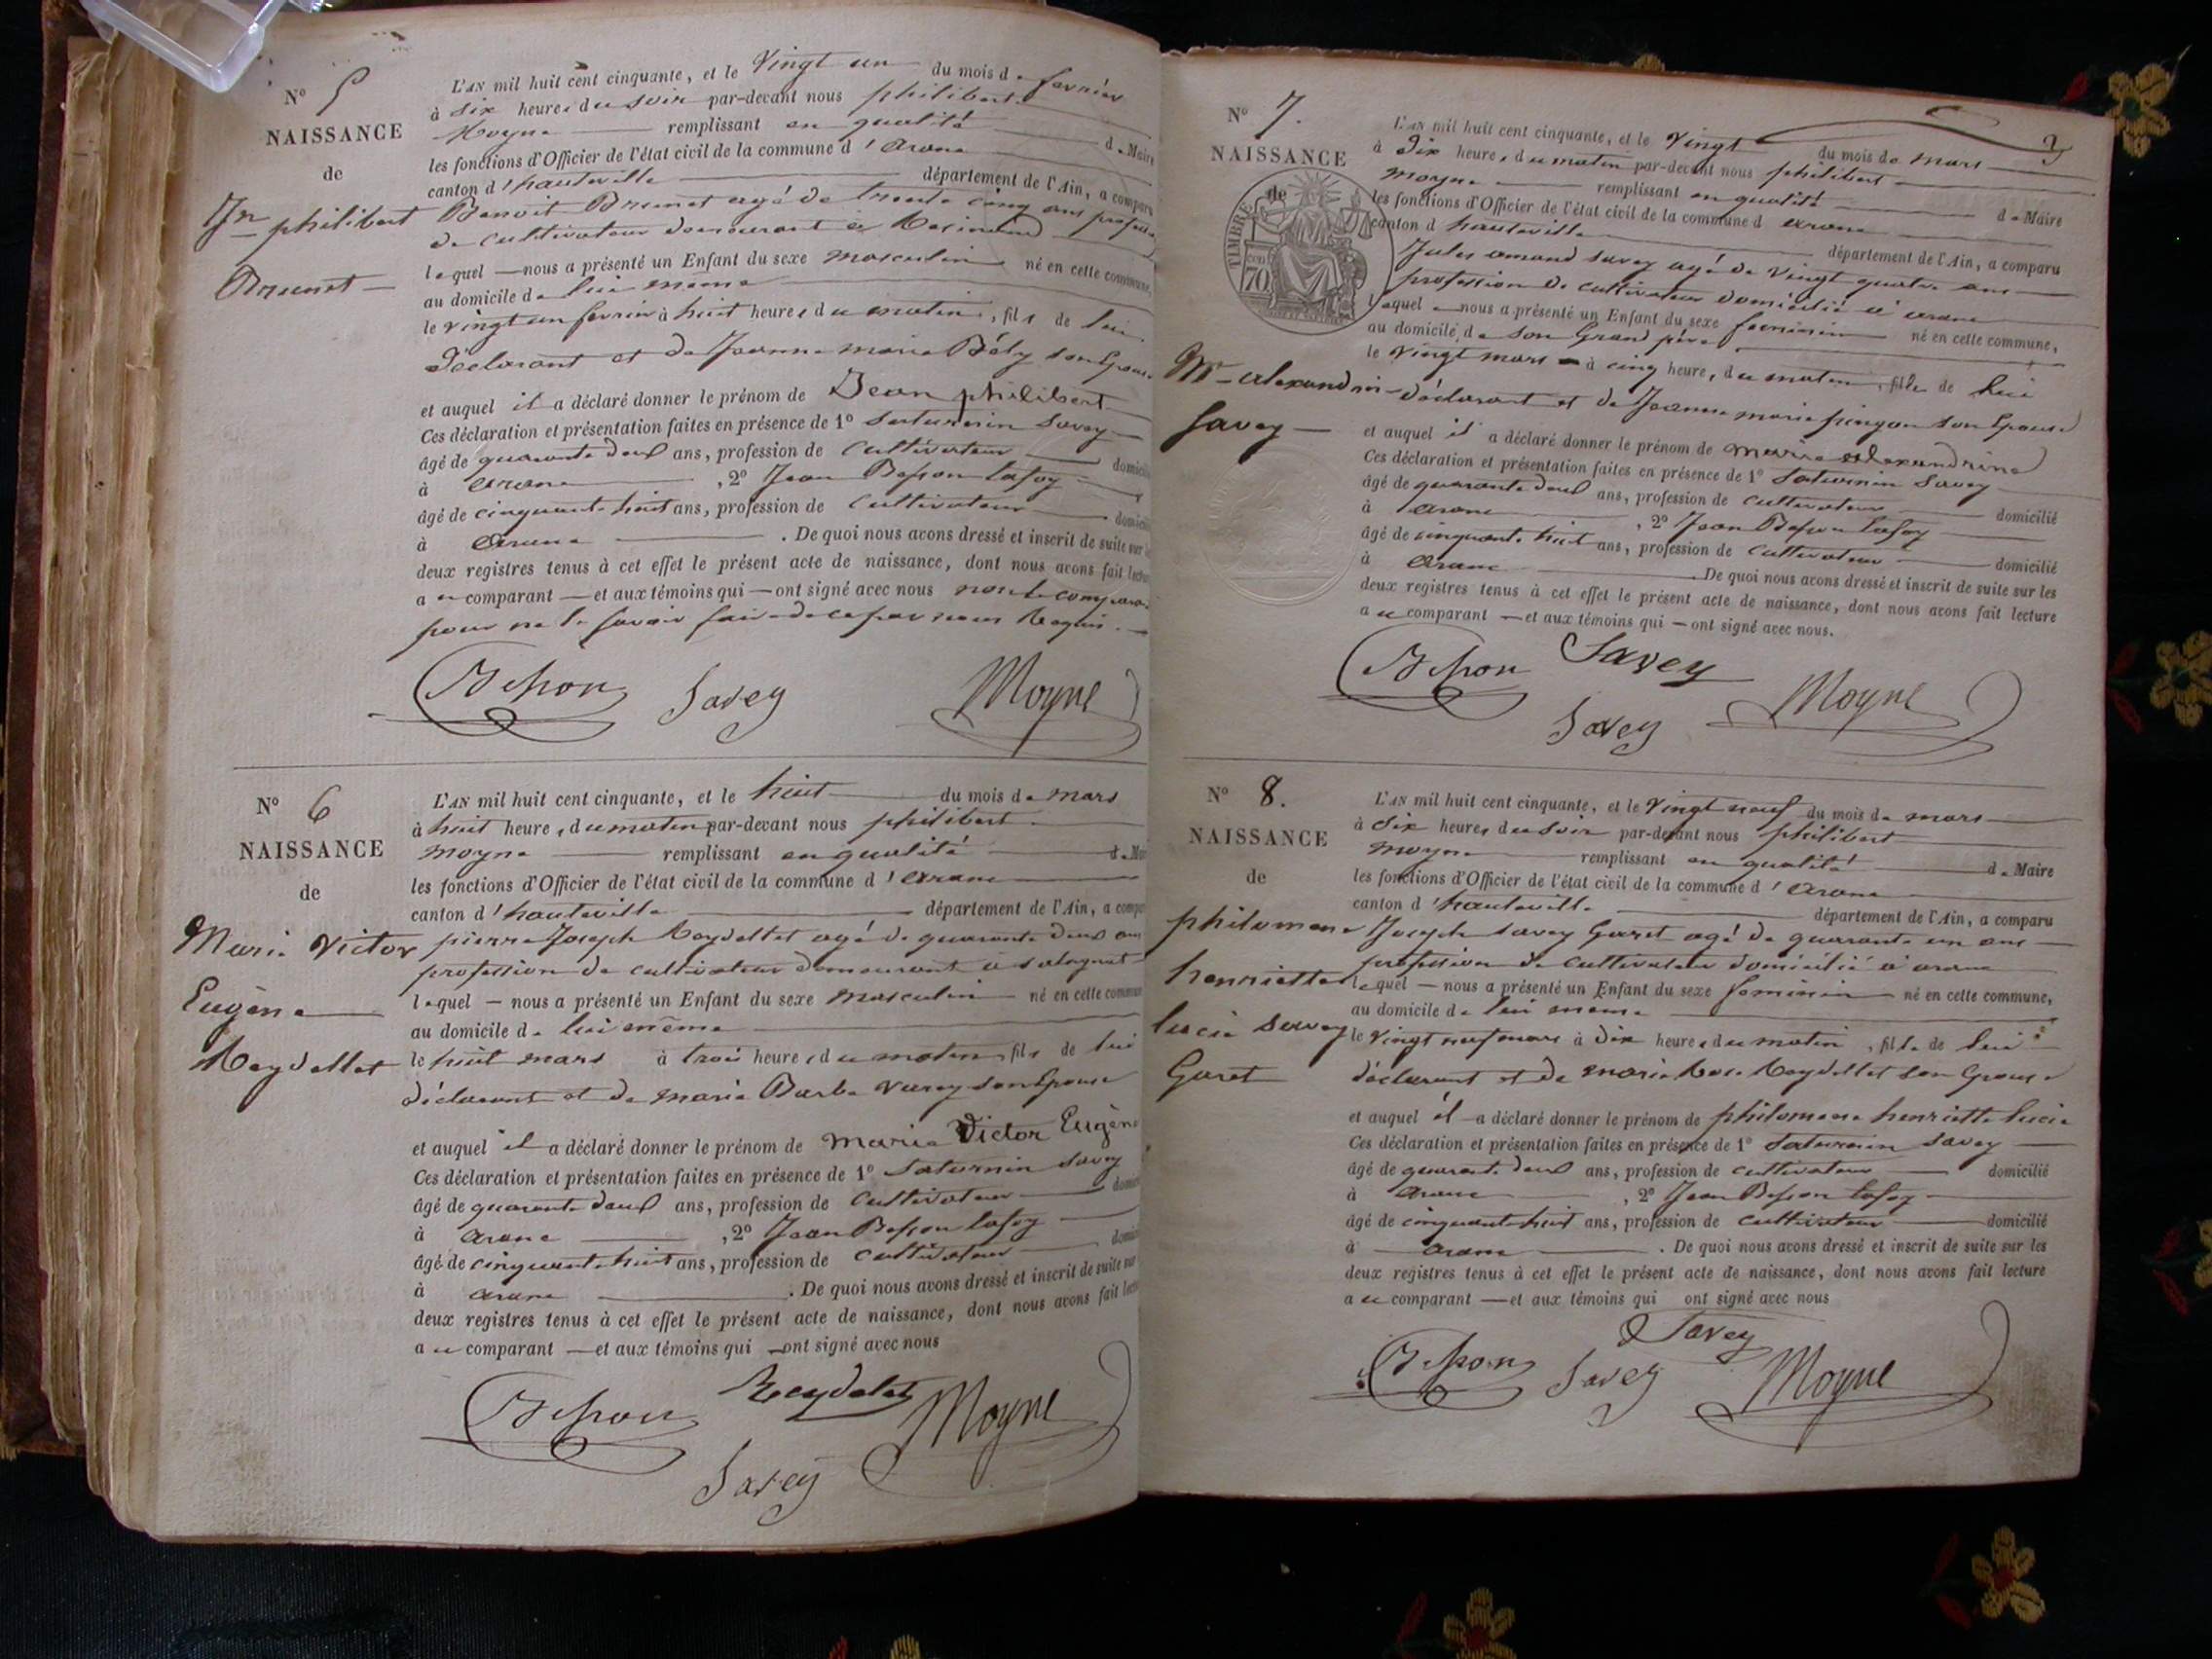 N° 5
NAISSANCE
de
Jn philibert
Brunet
L'AN mil huit cent cinquante, et le Vingt un du mois de fevrier
à six heures du soir par-devant nous philibert
Moyne remplissant en qualité de Maire
les fonctions d'Officier de l'état civil de la commune d'arane
canton d'hauteville département de l'Ain, a comparu
Benoit Brunet agé de trente cinq ans profession
de cultivateur demeurant à
lequel nous a présenté un Enfant du sexe masculin né en cette commune,
au domicile de lui meme
le vingt un fevrier à huit heures du matin, fils de lui
déclarant et de Jeanne marie Bély son Epouse
et auquel il a déclaré donner le prénom de Jean philibert
Ces déclaration et présentation faites en présence de 1° Saturnin Savey
âgé de quarante deux ans, profession de Cultivateur domicilié
à arane , 2° Jean Besson lafoy
âgé de cinquante huit ans, profession de Cultivateur domicilié
à arane . De quoi nous avons dressé et inscrit de suite sur les
deux registres tenus à cet effet le présent acte de naissance, dont nous avons fait lecture
a u comparant et aux témoins qui ont signé avec nous non le comparant
pour ne le savoir faire de ce par nous Requis
Besson Savey Moyne
N° 6
NAISSANCE
de
Marie Victor
Eugène
Reydellet
L'AN mil huit cent cinquante, et le huit du mois de mars
à huit heures du matin par-devant nous philibert
moyne remplissant en qualité de Maire
les fonctions d'Officier de l'état civil de la commune d'arane
canton d'hauteville département de l'Ain, a comparu
pierre Joseph Reydellet agé de quarante deux ans
profession de cultivateur demeurant à
lequel nous a présenté un Enfant du sexe masculin né en cette commune
au domicile de lui même
le huit mars à trois heures du matin fils de lui
déclarant et de marie Barbe Varey son Epouse
et auquel il a déclaré donner le prénom de marie Victor Eugène
Ces déclaration et présentation faites en présence de 1° Saturnin Savey
âgé de quarante deux ans, profession de Cultivateur domicilié
à arane , 2° Jean Besson lafoy
âgé de cinquante huit ans, profession de cultivateur domicilié
à arane . De quoi nous avons dressé et inscrit de suite sur
deux registres tenus à cet effet le présent acte de naissance, dont nous avons fait lecture
a u comparant et aux témoins qui ont signé avec nous
Besson Reydelet Moyne
Savey
3
N° 7.
NAISSANCE
de
TIMBRE
70
Mie alexandrine
Savey
L'AN mil huit cent cinquante, et le Vingt du mois de mars
à Dix heures du matin par-devant nous philibert
moyne remplissant en qualité de Maire
les fonctions d'Officier de l'état civil de la commune d arane
canton d hauteville département de l'Ain, a comparu
Jules amand Savey agé de Vingt quatre ans
profession de cultivateur domicilié à arane
lequel nous a présenté un Enfant du sexe feminin né en cette commune,
au domicile de son Grand père
le Vingt mars à cinq heures du matin, fille de lui
déclarant et de Jeanne marie pingon son Epouse
et auquel il a déclaré donner le prénom de marie alexandrine
Ces déclaration et présentation faites en présence de 1° Saturnin Savey
âgé de quarante deux ans, profession de cultivateur domicilié
à arane , 2° Jean Besson lafoy
âgé de cinquante huit ans, profession de cultivateur domicilié
à arane De quoi nous avons dressé et inscrit de suite sur les
deux registres tenus à cet effet le présent acte de naissance, dont nous avons fait lecture
a u comparant et aux témoins qui ont signé avec nous.
Besson Savey
Savey Moyne
N° 8.
NAISSANCE
de
philomene
henriette
lucie Savey
Goret
L'AN mil huit cent cinquante, et le Vingt neuf du mois de mars
à six heures du soir par-devant nous philibert
moyne remplissant en qualité de Maire
les fonctions d'Officier de l'état civil de la commune d'arane
canton d'hauteville département de l'Ain, a comparu
Joseph Savey Goret agé de quarante un ans
profession de cultivateur domicilié à arane
lequel nous a présenté un Enfant du sexe feminin né en cette commune,
au domicile de lui meme
le Vingt neuf mars à dix heures du matin , fille de lui
déclarant et de marie Rose Reydellet son Epouse
et auquel il a déclaré donner le prénom de philomene henriette lucie
Ces déclaration et présentation faites en présence de 1° Saturnin Savey
âgé de quarante deux ans, profession de cultivateur domicilié
à arane , 2° Jean Besson lafoy
âgé de cinquante huit ans, profession de cultivateur domicilié
à arane . De quoi nous avons dressé et inscrit de suite sur les
deux registres tenus à cet effet le présent acte de naissance, dont nous avons fait lecture
a u comparant et aux témoins qui ont signé avec nous
Savey
Besson Savey Moyne